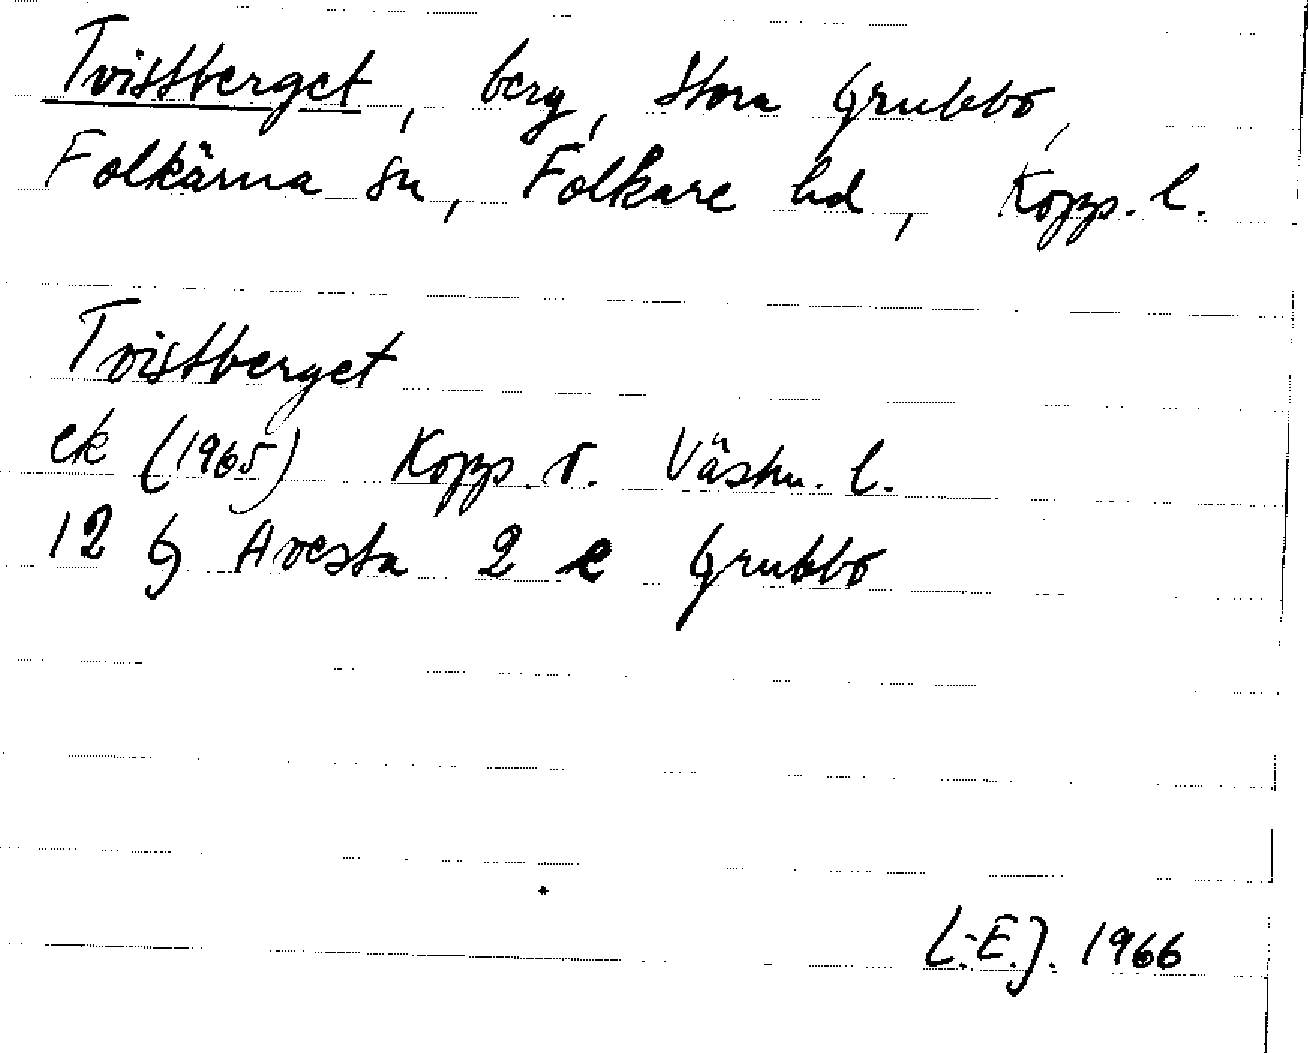 Tvistberget, berg, Stora Grubbo,
Folkärna sn, Folkare hd, Kopp. l.
Tvistberget
ek (1965) Kopp. o. Västm. l.
12 G Avesta 2 e Grubbo
L.-E.J. 1966